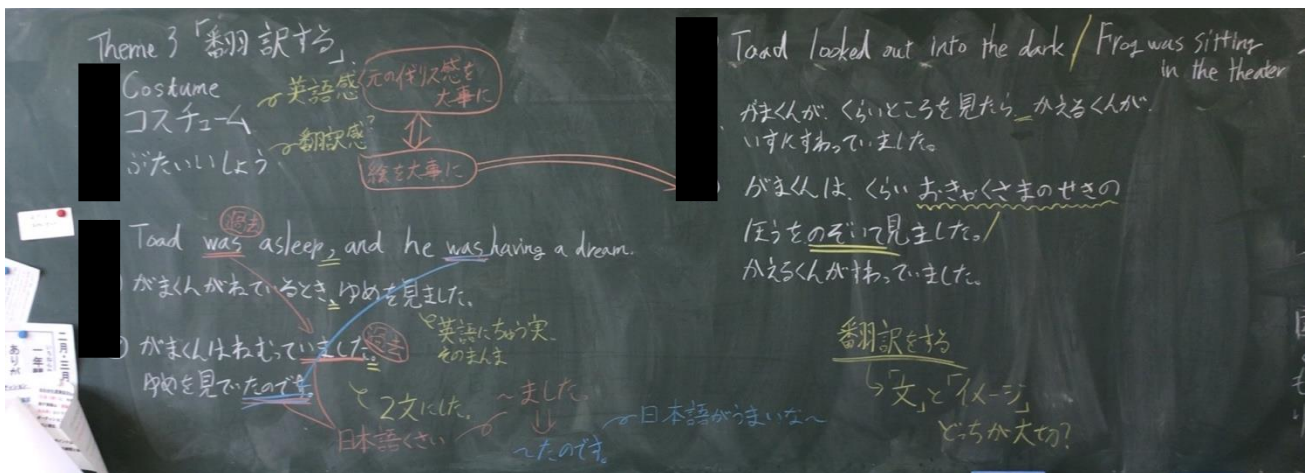 Theme 3 「翻訳する」
Costume
コスチューム
ぶたいいしょう
英語感
翻訳感?
元のイギリス感を
大事に
絵を大事に
過去
Toad was asleep, and he was having a dream.
がまくんがねているとき、ゆめを見ました。
英語にちゅう実、
そのまんま
がまくんはねむっていました。
過去
ゆめを見ていたのです。
2文にした。
日本語くさい
〜ました。
〜たのです。
日本語がうまいな〜
Toad looked out into the dark / Frog was sitting
in the theater
がまくんが、くらいところを見たら、かえるくんが、
いすにすわっていました。
がまくんは、くらい おきゃくさまのせきの
ほうをのぞいて見ました。/
かえるくんがすわっていました。
翻訳をする
「文」と「イメージ」
どっちが大切?
二月・三月
一年
あり